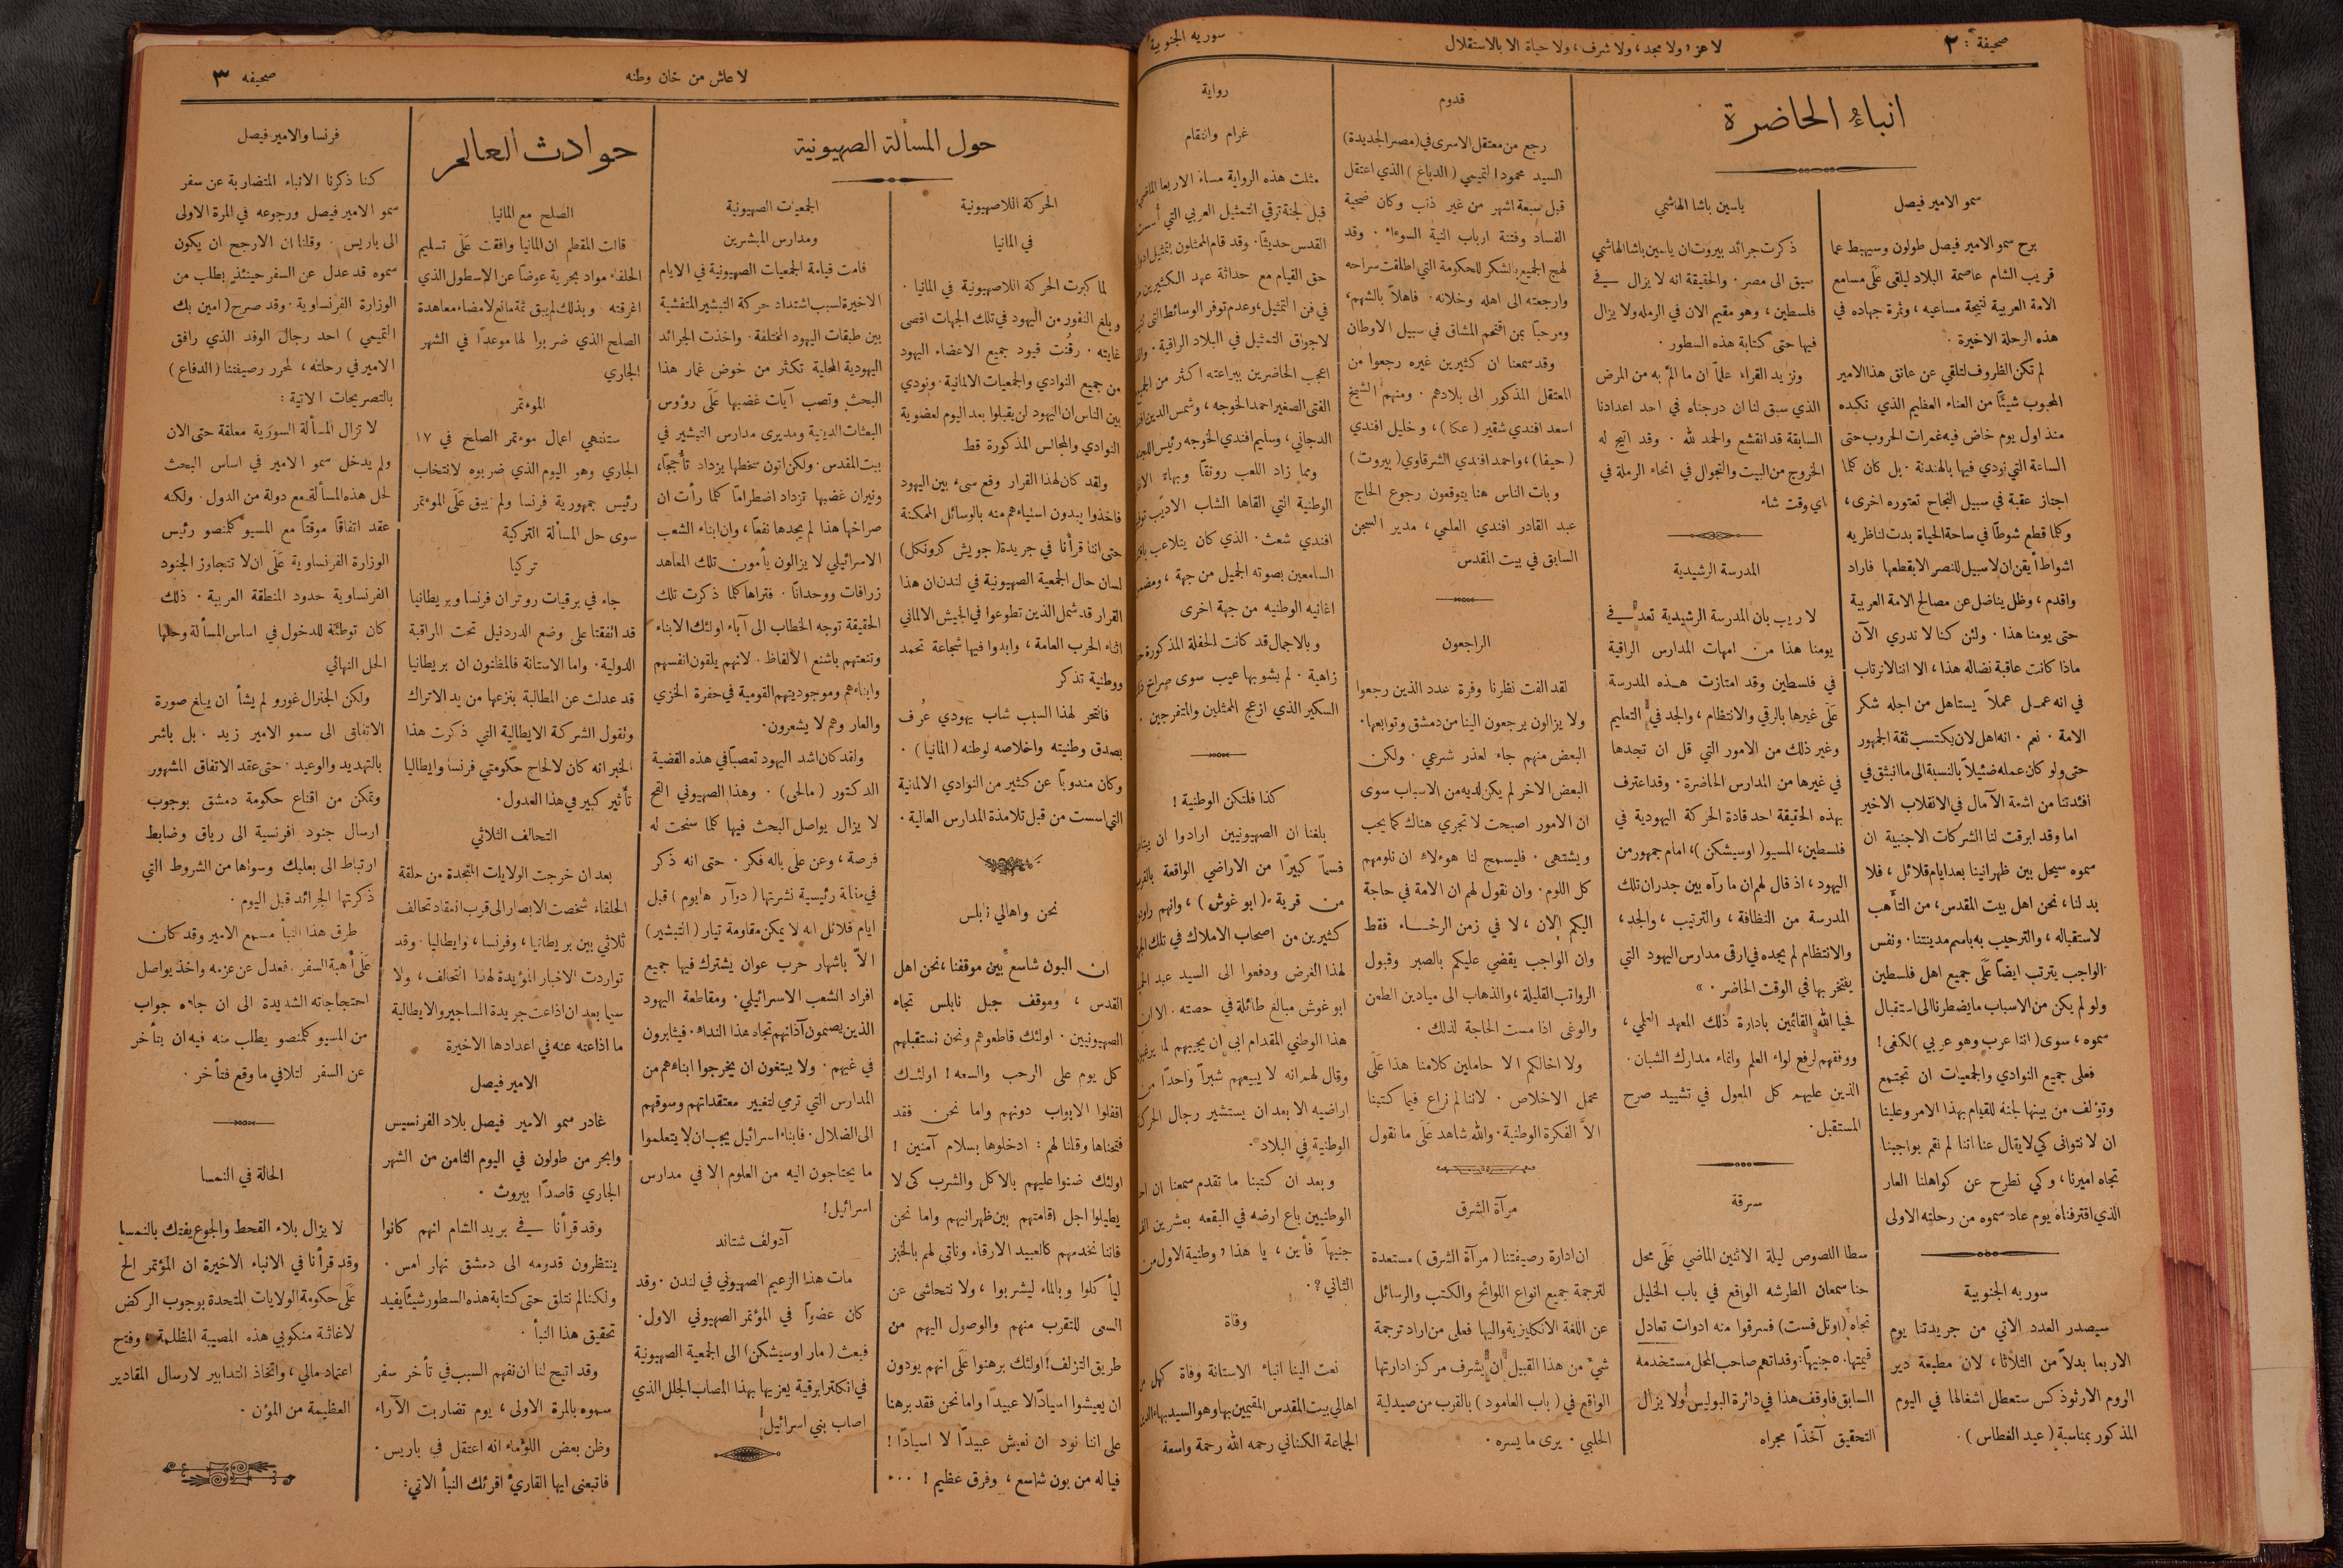 صحيفة : ٢
لا عز، ولا مجد، ولا شرف، ولا حياة الا بالاستقلال
سوريه الجنوبية
انباءُ الحاضرة
سمو الامير فيصل
برح سمو الامير فيصل طولون وسيهبط عما
قريب الشام عاصمة البلاد ليلقى عَلَى مسامع
الامة العربية نتيجة مساعيه ، وثمرة جهاده في
هذه الرحلة الاخيرة .
لم تكن الظروف لتلقي عن عاتق هذا الامير
المحبوب شيئًا من العناء العظيم الذي تكبده
منذ اول يوم خاض فيه غمرات الحروب حتى
الساعة التي نودي فيها بالهدنة . بل كان كلما
اجتاز عقبة في سبيل النجاح تعتوره اخرى ،
وكلما قطع شوطًا في ساحة الحياة بدت لناظريه
اشواط أيقن ان لا سبيل للنصر الا بقطعها فاراد
واقدم ، وظل يناضل عن مصالح الامة العربية
حتى يومنا هذا . ولئن كنا لا ندري الآن
ماذا كانت عاقبة نضاله هذا ، الا اننا لا نرتاب
في انه عمـل عملاً يستاهل من اجله شكر
الامة . نعم . انه اهل لان يكتسب ثقة الجمهور
حتى ولو كان عمله ضئيلاً بالنسبة الى ما انبثق في
افئدتنا من اشعة الآمال في الانقلاب الاخير
اما وقد ابرقت لنا الشركات الاجنبية ان
سموه سيحل بين ظهرانينا بعد ايام قلائل ، فلا
بد لنا ، نحن اهل بيت المقدس ، من التأهب
لاستقباله ، والترحيب به باسم مدينتنا . ونفس
الواجب يترتب ايضًا عَلَى جميع اهل فلسطين
ولو لم يكن من الاسباب ما يضطرنا الى استقبال
سموه ، سوى ( اننا عرب وهو عربي ) لكفى !
فعلى جميع النوادي والجمعيات ان تجتمع
وتؤلف من بينها لجنة للقيام بهذا الامر وعلينا
ان لا نتوانى كي لا يقال عنا اننا لم نقم بواجبنا
تجاه اميرنا ، وكي نطرح عن كواهلنا العار
الذي اقترفناه يوم عاد سموه من رحلته الاولى
سوريه الجنوبية
سيصدر العدد الاتي من جريدتنا يوم
الاربعا بدلاً من الثلاثا ، لان مطبعة دير
الروم الارثوذكس ستعطل اشغالها في اليوم
المذكور بمناسبة ( عيد الغطاس ) .
ياسين باشا الهاشمي
ذكرت جرائد بيروت ان ياسين باشا الهاشمي
سيق الى مصر . والحقيقة انه لا يزال في
فلسطين ، وهو مقيم الان في الرمله ولا يزال
فيها حتى كتابة هذه السطور .
ونزيد القراء علمًا ان ما المَّ به من المرض
الذي سبق لنا ان درجناه في احد اعدادنا
السابقة قد انقشع والحمد لله . وقد اتيح له
الخروج من البيت والتجوال في انحاء الرملة في
اي وقت شاء
المدرسة الرشيدية
لا ريب بان المدرسة الرشيدية تعدُّ في
يومنا هذا من امهات المدارس الراقية
في فلسطين وقد امتازت هـذه المدرسة
عَلَى غيرها بالرقي والانتظام ، والجد في التعليم
وغير ذلك من الامور التي قل ان تجدها
في غيرها من المدارس الحاضرة . وقد اعترف
بهذه الحقيقة احد قادة الحركة اليهودية في
فلسطين ، المسيو ( اوسيشكن ) ، امام جمهور من
اليهود ، اذ قال لهم ان ما رآه بين جدران تلك
المدرسة من النظافة ، والترتيب ، والجد ،
والانتظام لم يجده في ارقى مدارس اليهود التي
يفتخر بها في الوقت الحاضر . »
فحيا الله القائمين بادارة ذلك المعهد العلمي ،
ووفقهم لرفع لواء العلم وانماء مدارك الشبان .
الذين عليهم كل المعول في تشييد صرح
المستقبل .
سرقة
سطا اللصوص ليلة الاثنين الماضي عَلَى محل
حنا سمعان الطرشه الواقع في باب الخليل
تجاه ( اوتل فست ) فسرقوا منه ادوات تعادل
قيمتها ٥٠ جنيهًا : وقد اتهم صاحب المحل مستخدمه
السابق فاوقف هذا في دائرة البوليس ولا يزال
التحقيق آخذًا مجراه
قدوم
رجع من معتقل الاسرى في (مصر الجديدة)
السيد محمود التميمي ( الدباغ ) الذي اعتقل
قبل سبعة اشهر من غير ذنب وكان ضحية
الفساد وفتنة ارباب النية السوءاء . وقد
لهج الجميع بالشكر للحكومة التي اطلقت سراحه
وارجعته الى اهله وخلانه . فاهلاً بالشهم ،
ومرحبًا بمن اقتحم المشاق في سبيل الاوطان
وقد سمعنا ان كثيرين غيره رجعوا من
المعتقل المذكور الى بلادهم . ومنهم الشيخ
اسعد افندي شقير ( عكا ) ، وخليل افندي
( حيفا ) ، واحمد افندي الشرقاوي ( بيروت )
وبات الناس هنا يتوقعون رجوع الحاج
عبد القادر افندي العلمي ، مدير السجن
السابق في بيت المقدس
الراجعون
لقد الفت نظرنا وفرة عدد الذين رجعوا
ولا يزالون يرجعون الينا من دمشق وتوابعها .
البعض منهم جاء لعذر شرعي . ولكن
البعض الاخر لم يكن لديه من الاسباب سوى
ان الامور اصبحت لا تجري هناك كما يجب
ويشتهى . فليسمح لنا هوءلاء ان نلومهم
كل اللوم . وان نقول لهم ان الامة في حاجة
اليكم الان ، لا في زمن الرخـاء فقط
وان الواجب يقضي عليكم بالصبر وقبول
الرواتب القليلة ، والذهاب الى ميادين الطعن
والوغى اذا مست الحاجة لذلك .
ولا اخالكم الا حاملين كلامنا هذا عَلَى
محمل الاخلاص . لاننا لم نراع فيما كتبنا
الاَّ الفكرة الوطنية . والله شاهد عَلَى ما نقول
مرآة الشرق
ان ادارة رصيفتنا ( مرآة الشرق ) مستعدة
لترجمة جميع انواع اللوائح والكتب والرسائل
عن اللغة الانكليزية واليها فعلى من اراد ترجمة
شيء من هذا القبيل ان يشرف مركز ادارتها
الواقع في ( باب العامود ) بالقرب من صيدلية
الحلبي . يرى ما يسره .
رواية
غرام وانتقام
مثلت هذه الرواية مساء الاربعا الماضي
قبل لجنة ترقي التمثيل العربي التي أسست
القدس حديثًا . وقد قام الممثلون بتمثيل
حق القيام مع حداثة عهد الكثيرين
في فن التمثيل ، وعدم توفر الوسائط التي
لاجواق التمثيل في البلاد الراقية .
اعجب الحاضرين ببراعته اكثر من
الفتى الصغير احمد الخوجه ، وشمس الدين
الدجاني ، وسليم افندي الخوجه رئيس
ومما زاد اللعب رونقًا وبهاءً
الوطنية التي القاها الشاب الاديب
افندي شعث . الذي كان يتلاعب
السامعين بصوته الجميل من جهة ،
اغانيه الوطنيه من جهة اخرى
وبالاجمال قد كانت الحفلة المذكورة
زاهية . لم يشوبها عيب سوى صراخ
السكير الذي ازعج الممثلين والمتفرجين .
كذا فلتكن الوطنية !
بلغنا ان الصهيونيين ارادوا ان
قسمًا كبيرًا من الاراضي الواقعة
من قرية ( ابو غوش ) ، وانهم
كثيرين من اصحاب الاملاك في تلك
لهذا الغرض ودفعوا الى السيد عبد
ابو غوش مبالغ طائلة في حصته . الا ان
هذا الوطني المقدام ابى ان يجيبهم لما
وقال لهم انه لا يبيعهم شبرًا واحدًا من
اراضيه الا بعد ان يستشير رجال الحركة
الوطنية في البلاد .
وبعد ان كتبنا ما تقدم سمعنا ان
الوطنيين باع ارضه في البقعه بعشرين
جنيهاً فأين ، يا هذا ، وطنية الاول من
الثاني ؟ .
وفاة
نعت الينا انباء الاستانة وفاة كهل من
اهالي بيت المقدس المقيمين بها وهو السيد بهاء الدين
الجماعة الكناني رحمه الله رحمة واسعة
لا عاش من خان وطنه
صحيفه ٣
حول المسألة الصهيونية
الحركة اللاصهيونية
في المانيا
لما كبرت الحركة اللاصهيونية في المانيا .
وبلغ النفور من اليهود في تلك الجهات اقصى
غايته . رقُنت قيود جميع الاعضاء اليهود
من جميع النوادي والجمعيات الالمانية . ونودي
بين الناس ان اليهود لن يقبلوا بعد اليوم لعضوية
النوادي والمجالس المذكورة قط
ولقد كان لهذا القرار وقع سيء بين اليهود
فاخذوا يبدون استياءهم منه بالوسائل الممكنة
حتى اننا قرأنا في جريدة ( جويش كرونكل )
لسان حال الجمعية الصهيونية في لندن ان هذا
القرار قد شمل الذين تطوعوا في الجيش الالماني
اثناء الحرب العامة ، وابدوا فيها شجاعة تحمد
ووطنية تذكر
فانتحر لهذا السبب شاب يهودي عُرف
بصدق وطنيته واخلاصه لوطنه ( المانيا ) .
وكان مندوبًا عن كثير من النوادي الالمانية
التي اسست من قبل تلامذة المدارس العالية .
نحن واهالي نابلس
ان البون شاسع بين موقفنا ، نحن اهل
القدس ، وموقف جبل نابلس تجاه
الصهيونيين . اولئك قاطعوهم ونحن نستقبلهم
كل يوم على الرحب والسعه ! اولئـك
اقفلوا الابواب دونهم واما نحن فقد
فتحناها وقلنا لهم : ادخلوها بسلام آمنين !
اولئك ضنوا عليهم بالاكل والشرب كى لا
يطيلوا اجل اقامتهم بين ظهرانيهم واما نحن
فاننا نخدمهم كالعبيد الارقاء وناتى لهم بالخبز
ليأكلوا وبالماء ليشربوا ، ولا نتحاشى عن
السعى للتقرب منهم والوصول اليهم من
طريق التزلف ! اولئك برهنوا عَلَى انهم يودون
ان يعيشوا اسيادًا لا عبيدًا واما نحن فقد برهنا
على اننا نود ان نعيش عبيدًا لا اسيادًا !
فيا له من بون شاسع ، وفرق عظيم ! ...
الجمعيات الصهيونية
ومدارس المبشرين
قامت قيامة الجمعيات الصهيونية في الايام
الاخيرة لسبب اشتداد حركة التبشير المتفشية
بين طبقات اليهود المختلفة . واخذت الجرائد
اليهودية المحلية تكثر من خوض غمار هذا
البحث وتصب آيات غضبها عَلَى رؤوس
البعثات الدينية ومديرى مدارس التبشير في
بيت المقدس . ولكن اتون سخطها يزداد تأججًا ،
ونيران غضبها تزداد اضطرامًا كلما رأت ان
صراخها هذا لم يجدها نفعًا ، وان ابناء الشعب
الاسرائيلي لا يزالون يأمون تلك المعاهد
زرافات ووحدانًا . فتراها كما ذكرت تلك
الحقيقة توجه الخطاب الى آباء اولئك الابناء
وتنعتهم باشنع الألفاظ . لانهم يلقون انفسهم
وابناءهم وموجوديتهم القومية في حفرة الخزي
والعار وهم لا يشعرون .
ولقد كان اشد اليهود تعصبًا في هذه القضية
الدكتور ( مالحى ) . وهذا الصهيوني القح
لا يزال يواصل البحث فيها كلما سنحت له
فرصة ، وعن على باله فكر . حتى انه ذكر
في مقالة رئيسية نشرتها ( دوآر هايوم ) قبل
ايام قلائل انه لا يمكن مقاومة تيار ( التبشير )
الاَّ باشهار حرب عوان يشترك فيها جميع
افراد الشعب الاسرائيلي . ومقاطعة اليهود
الذين يصمون آذانهم تجاه هذا النداء . فيثابرون
في غيهم . ولا يبتغون ان يخرجوا ابناءهم من
المدارس التي ترمي لتغيير معتقداتهم وسوقهم
الى الضلال . فابناء اسرائيل يجب ان لا يتعلموا
ما يحتاجون اليه من العلوم الا في مدارس
اسرائيل !
آدولف شتاند
مات هذا الزعيم الصهيوني في لندن . وقد
كان عضوًا في المؤتمر الصهيوني الاول .
فبعث ( مار اوسيشكن ) الى الجمعية الصهيونية
في انكلترا برقية يعزيها بهذا المصاب الجلل الذي
اصاب بني اسرائيل !
حوادث العالم
الصلح مع المانيا
قالت المقطم ان المانيا وافقت عَلَى تسليم
الحلفاء مواد بحرية عوضًا عن الاسطول الذي
اغرقته . وبذلك لم يبق ثمة مانع لامضاء معاهدة
الصلح الذي ضربوا لها موعدًا في الشهر
الجاري
الموءتمر
ستنتهي اعمال موءتمر الصلح في ١٧
الجاري وهو اليوم الذي ضربوه لانتخاب
رئيس جمهورية فرنسا ولم يبق عَلَى الموءتمر
سوى حل المسألة التركية
تركيا
جاء في برقيات روتر ان فرنسا وبريطانيا
قد اتفقتا على وضع الدردنيل تحت المراقبة
الدولية . واما الاستانة فالمظنون ان بريطانيا
قد عدلت عن المطالبة بنزعها من يد الاتراك
وتقول الشركة الايطالية التي ذكرت هذا
الخبر انه كان لالحاح حكومتي فرنسا وايطاليا
تأثير كبير في هذا العدول .
التحالف الثلاثي
بعد ان خرجت الولايات المتحدة من حلقة
الحلفاء شخصت الابصار الى قرب انعقاد تحالف
ثلاثي بين بريطانيا ، وفرنسا ، وايطاليا . وقد
تواردت الاخبار المؤيدة لهذا التحالف ، ولا
سيما بعد ان اذاعت جريدة الساجيرو الايطالية
ما اذاعته عنه في اعدادها الاخيرة
الامير فيصل
غادر سمو الامير فيصل بلاد الفرنسيس
وابحر من طولون في اليوم الثامن من الشهر
الجاري قاصدًا بيروت .
وقد قرأنا في بريد الشام انهم كانوا
ينتظرون قدومه الى دمشق نهار امس .
ولكنا لم نتلق حتى كتابة هذه السطور شيئًا يفيد
تحقيق هذا النبأ .
وقد اتيح لنا ان نفهم السبب في تأخر سفر
سموه بالمرة الاولى ، يوم تضاربت الآراء
وظن بعض اللؤماء انه اعتقل في باريس .
فاتبعنى ايها القارئ اقرئك النبأ الاتي :
فرنسا والامير فيصل
كنا ذكرنا الانباء المتضاربة عن سفر
سمو الامير فيصل ورجوعه في المرة الاولى
الى باريس . وقلنا ان الارجح ان يكون
سموه قد عدل عن السفر حينئذٍ بطلب من
الوزارة الفرنساوية . وقد صرح ( امين بك
التميمي ) احد رجال الوفد الذي رافق
الامير في رحلته ، لمحرر رصيفتنا ( الدفاع )
بالتصريحات الاتية :
لا تزال المسألة السورية معلقة حتى الان
ولم يدخل سمو الامير في اساس البحث
لحل هذه المسألة مع دولة من الدول . ولكنه
عقد اتفاقًا موقتًا مع المسيو كلمنصو رئيس
الوزارة الفرنساوية عَلَى ان لا تتجاوز الجنود
الفرنساوية حدود المنطقة العربية . ذلك
كان توطئة للدخول في اساس المسألة وحلها
الحل النهائي
ولكن الجنرال غورو لم يشأ ان يبلغ صورة
الاتفاق الى سمو الامير زيد . بل باشر
بالتهديد والوعيد . حتى عقد الاتفاق المشهور
وتمكن من اقناع حكومة دمشق بوجوب
ارسال جنود افرنسية الى رياق وضابط
ارتباط الى بعلبك وسواها من الشروط التي
ذكرتها الجرائد قبل اليوم .
طرق هذا النبأ مسمع الامير وقد كان
عَلَى أُهبة السفر . فعدل عن عزمه واخذ يواصل
احتجاجاته الشديدة الى ان جاءه جواب
من المسيو كلمنصو يطلب منه فيه ان يتأخر
عن السفر لتلافي ما وقع فتأخر .
الحالة في النمسا
لا يزال بلاء القحط والجوع يفتك بالنمسا
وقد قرأنا في الانباء الاخيرة ان المؤتمر الح
عَلَى حكومة الولايات المتحدة بوجوب الركض
لاغاثة منكوبي هذه المصيبة المظلمة ، وفتح
اعتماد مالي ، واتخاذ التدابير لارسال المقادير
العظيمة من المؤن .